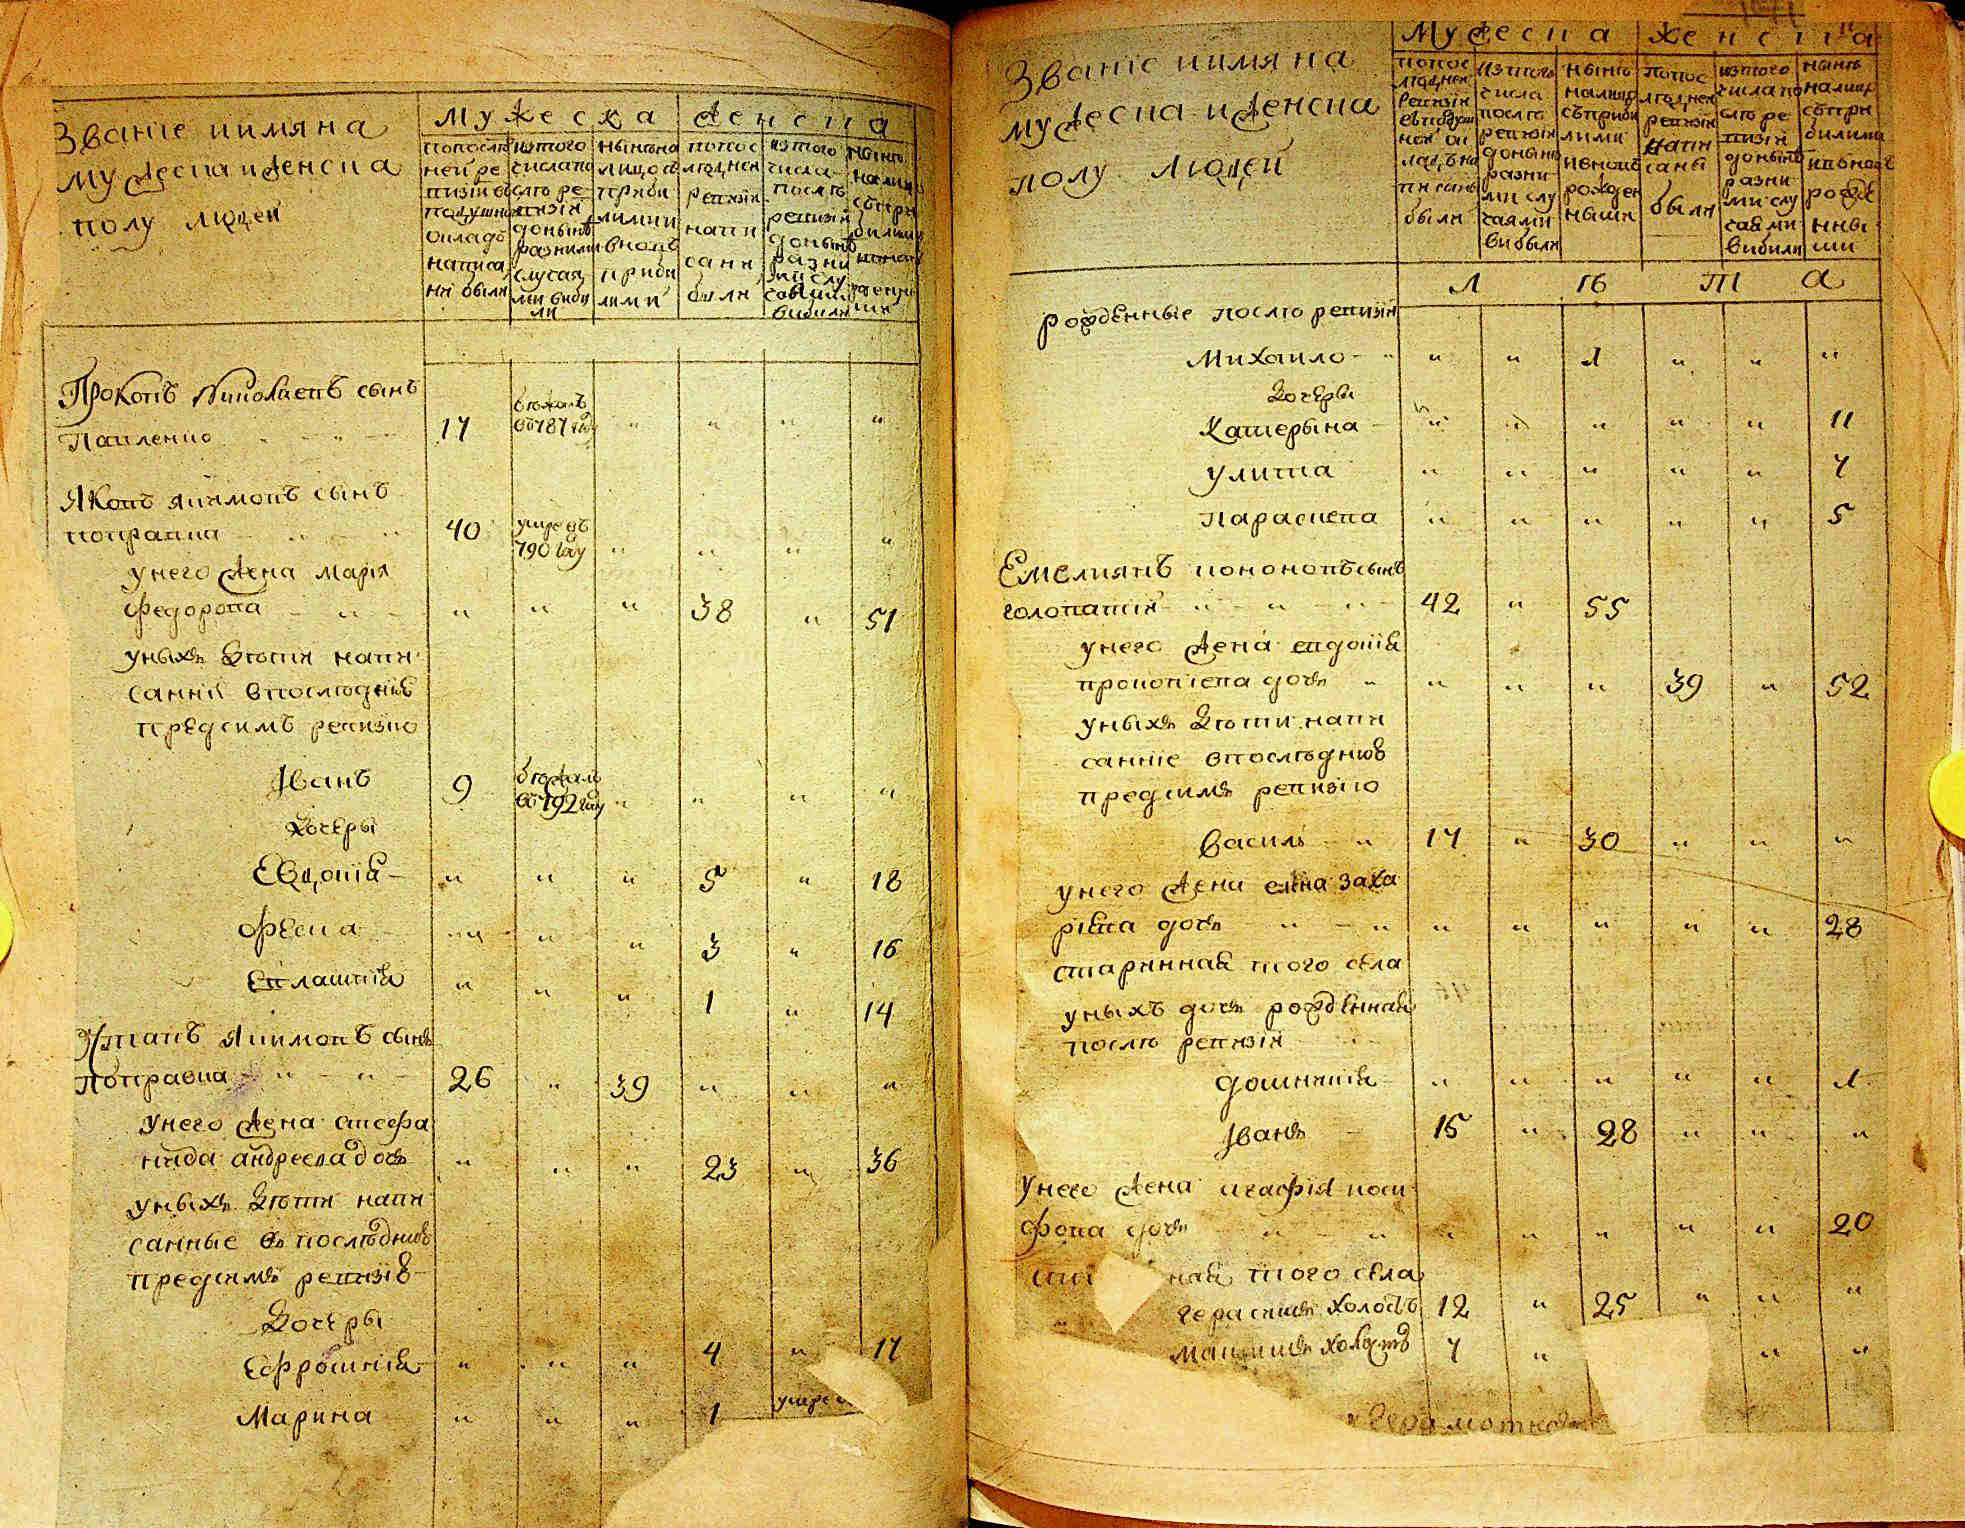 Званіе иимяна
мужеска иженска
полу людей
мужеска женска
попослѣ
ней ре
визіи въ
подушном
окладѣ
написа
ни были
изтого
числапо
слѣ ре
визіи
донынѣ
разними
случая
ми выбы
ли
попос
лѣдней
ревизіи
напи
сани
были
изтого
числа
послѣ
ревизіи
донынѣ
разни
ми слу
чаями
выбыли
Прокопъ Николаевъ сынъ
Павленко 17 бѣжалъ въ 787 году
Яковъ Якимовъ сынъ
поправка 40 умре въ 790 году
унего жена марія
федорова 38 51
унихъ дѣти напи
санніе впослѣднюю
предсимъ ревизію
Іванъ 9 бѣжалъ въ 792 году
дочеры
Евдокія 5 18
Феска 3 16
Евлашкія 1 14
Устапъ Якимовъ сынъ
поправка 26 39
унего жена стефа
нида андреева дочь 23 36
унихъ дѣти напи
санные въ послѣднюю
предсимъ ревизію
дочеры
Ефросинія 4 17
Марина 1 умре
Званіе иимяна
мужеска иженска
полу людей
мужеска женска
попос
лѣдней
ревизіи
въ подуш
ном ок
ладѣ на
писаны
были
изтого
числа
послѣ
ревизіи
донынѣ
разни
ми слу
чаями
выбыли
нынѣ
налицо
съприбы
лыми
ивновь
рожден
ными
попос
лѣдней
ревизіи
напи
саны
были
изтого
числа по
слѣ ре
визіи
донынѣ
разни
ми слу
чаями
выбыли
нынѣ
налицо
съпри
былыми
ивновь
рожде
нны
ми
л ѣ т а
рожденные послѣ ревизіи
Михайло 1
дочеры
Катерына 11
улита 7
параскева 5
Емелиянъ кононовъ сынъ
головатій 42 55
унего жена евдокія
прокопіева дочь 39 52
унихъ дѣти напи
санніе впослѣднюю
предсимъ ревизію
василь 17 30
унего жена елена заха
ріева дочь 28
старинная того села
унихъ дочь рожденная
послѣ ревизіи
домникія 1
Іванъ 15 28
унего жена агафія иоси
фова дочь 20
ная того села
герасимъ холостъ 12 25
максимъ холостъ 7